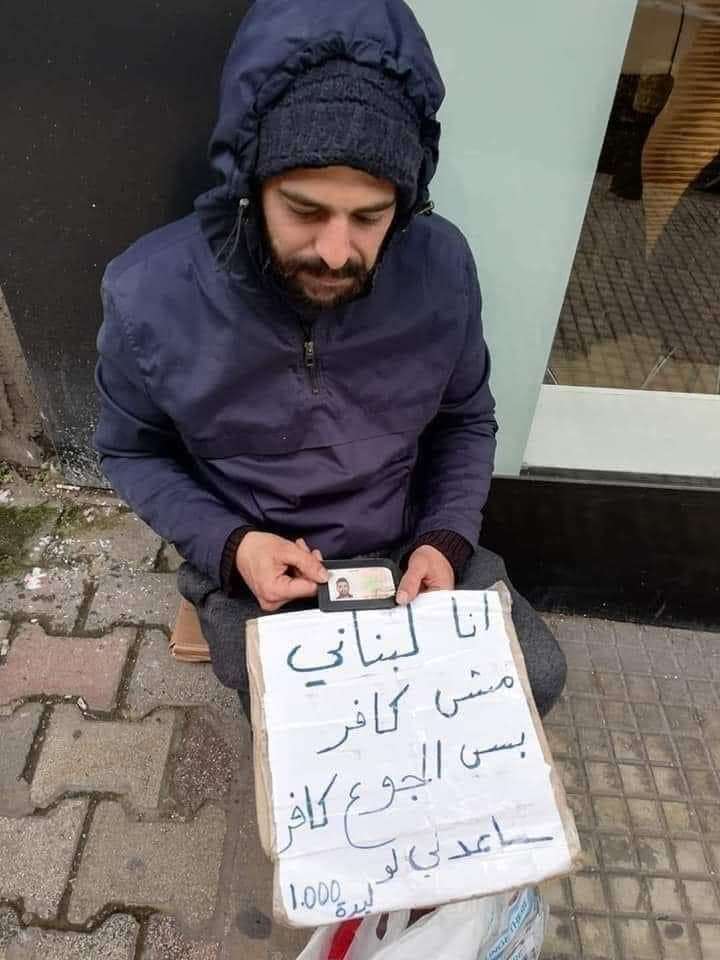 انا لبناني
مش كافر
بس الجوع كافر
ساعدني لو
1.000 ليرة